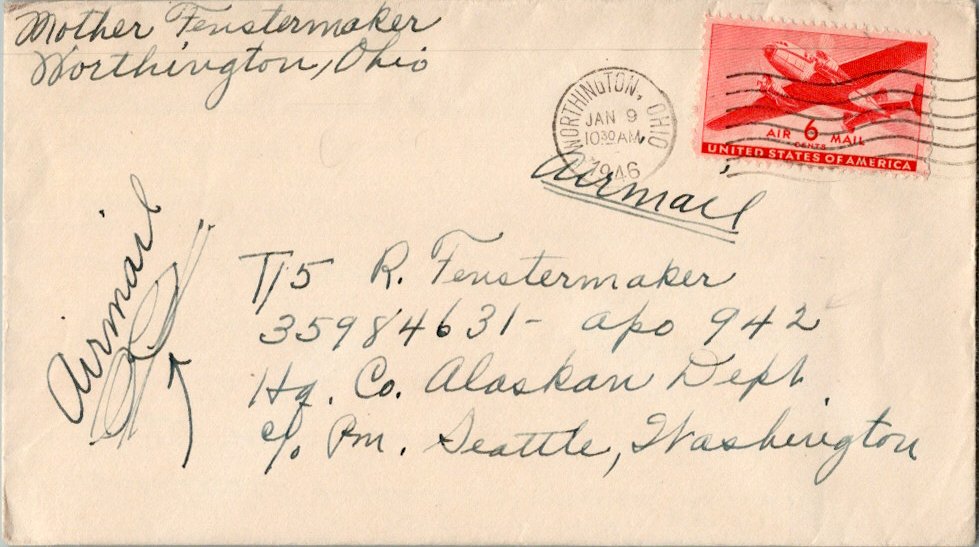 Mother Fenstermaker
Worthington, Ohio
WORTHINGTON, OHIO
JAN 9
10 30 AM
1946
AIR 6 MAIL
CENTS
UNITED STATES OF AMERICA
Airmail
Airmail
T/5 R. Fenstermaker
35984631- apo 942
Hq. Co. Alaskan Dept
c/o Pm. Seattle, Washington